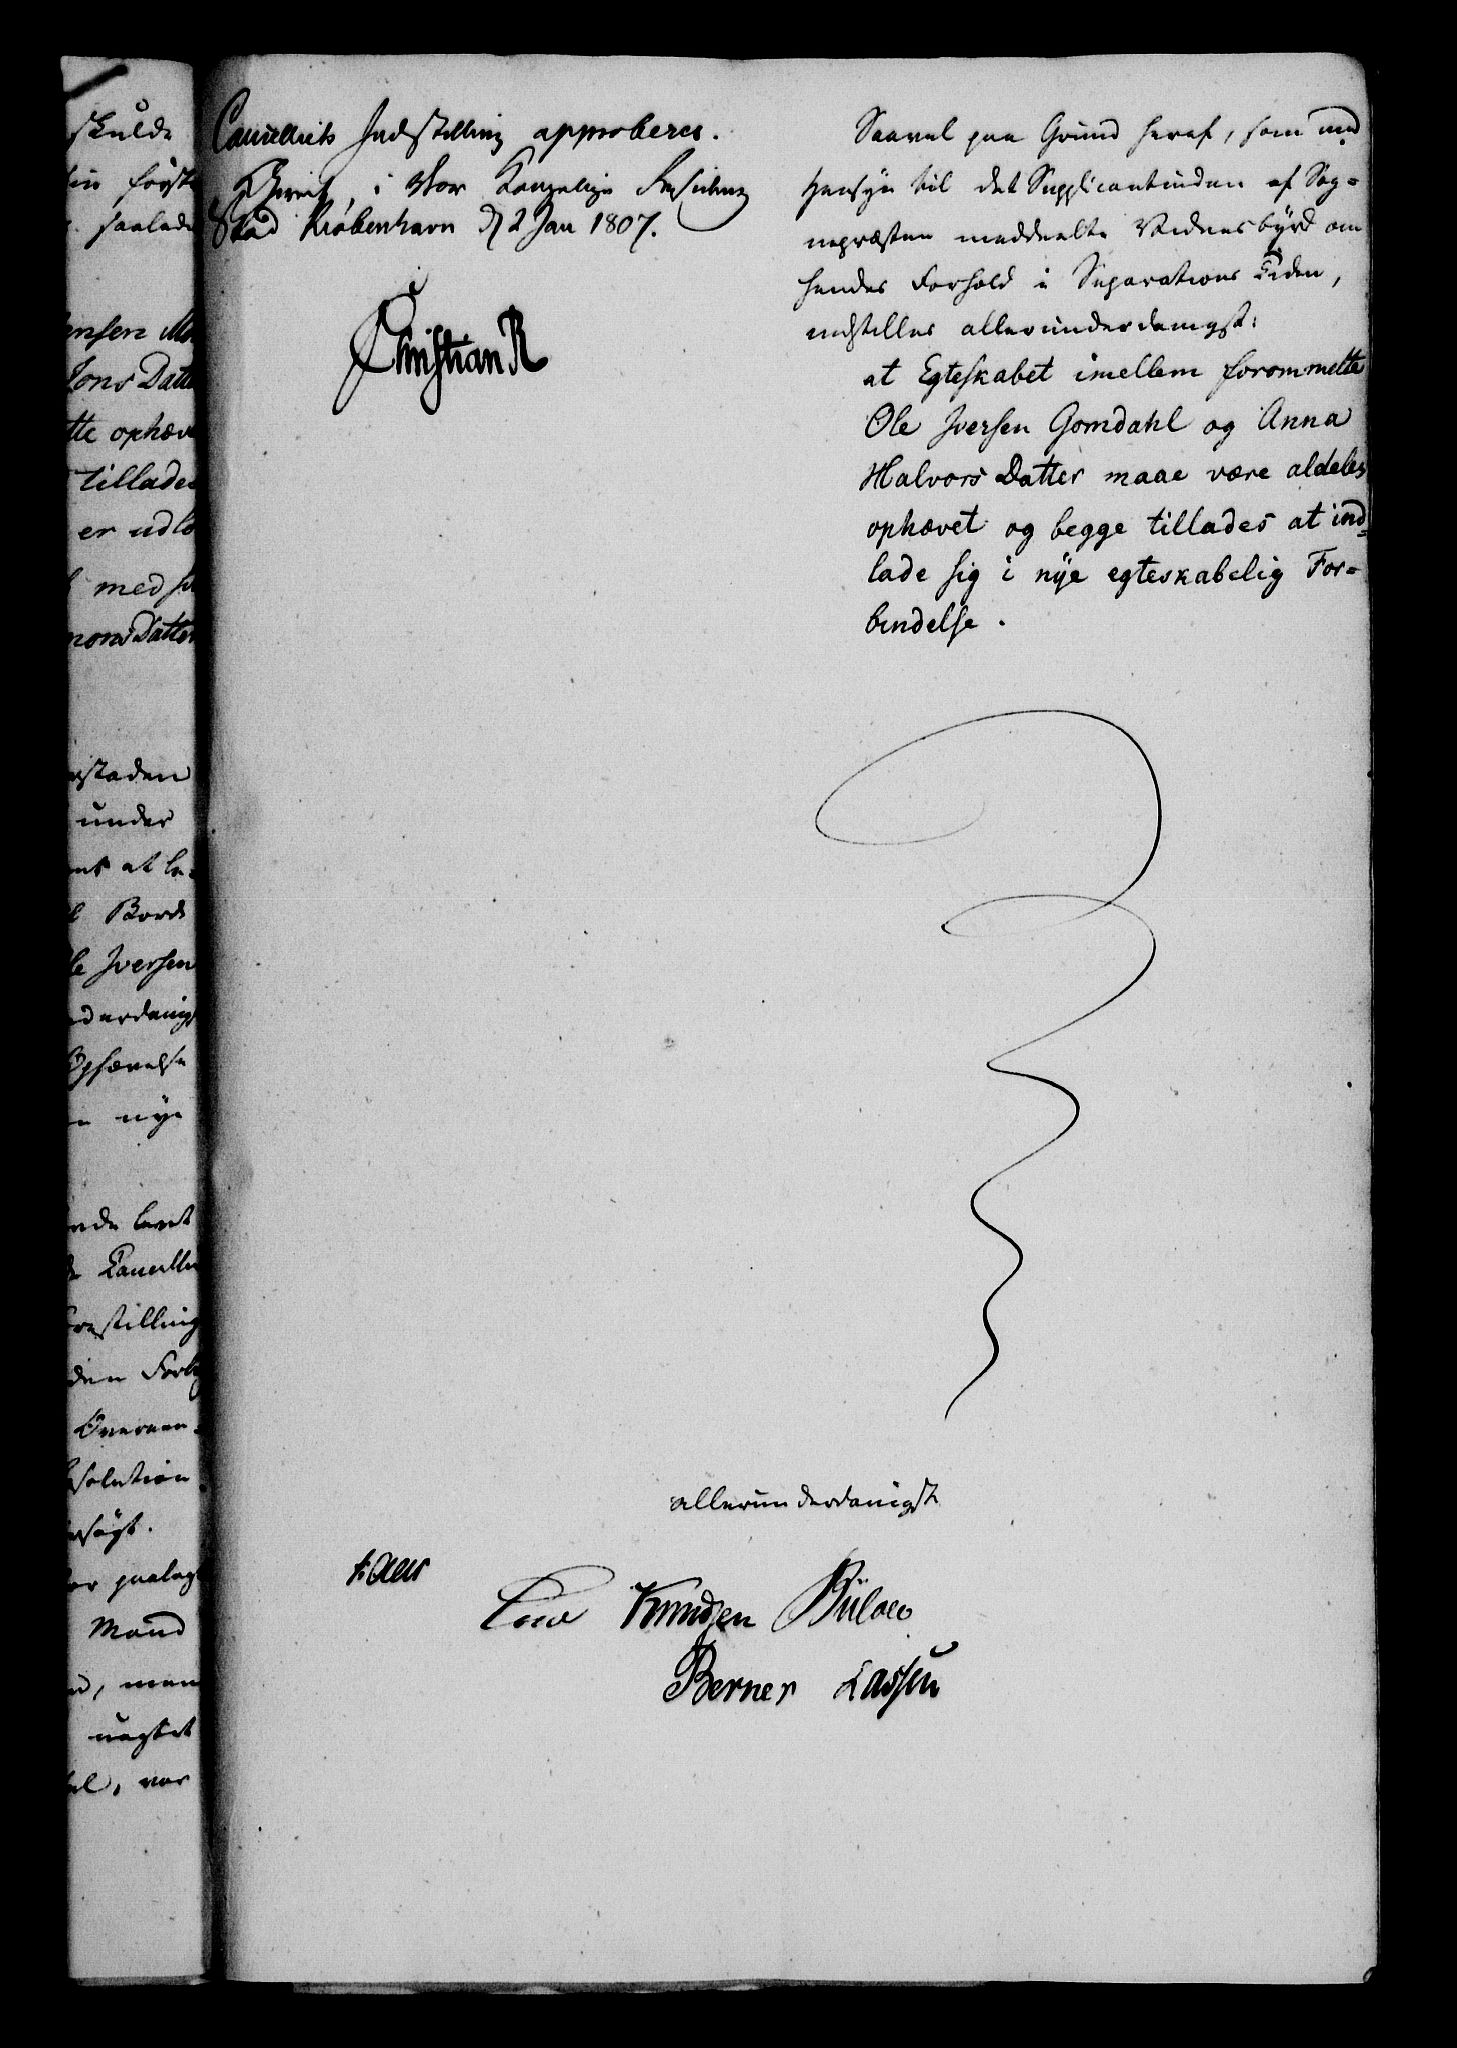 Cancelliets Indstilling approberes.
Skrevet i Vor Kongelige Residentz
Stad Kiøbenhavn d 2 Jan 1807.
Christian R
Saavel paa Grund heraf, som med
Hensyn til det Supplicantinden af Sog-
nepræsten meddeelte Vidnesbyrd om
hendes Forhold i Separations Tiden,
indstilles allerunderdanigst:
at Egteskabet imellem forommelte
Ole Iversen Gomdahl og Anna
Halvors Datter maae være aldeles
ophævet og begge tillades at ind-
lade sig i nye egteskabelig For-
bindelse.
allerunderdanigst
Knudsen Bülow
Berner Lassen
skulde
først
saalede
ensen
Jons Datte
tte ophæv
tillades
er udlø
med
mons Datter
staden
under
at be-
Bord
le Iversen
nderdanigs
Ophævelse
nye
levet
Cancelli
restilling
den
Overeen-
solution
søgt.
paalag
Mand
, men
uagtet
var